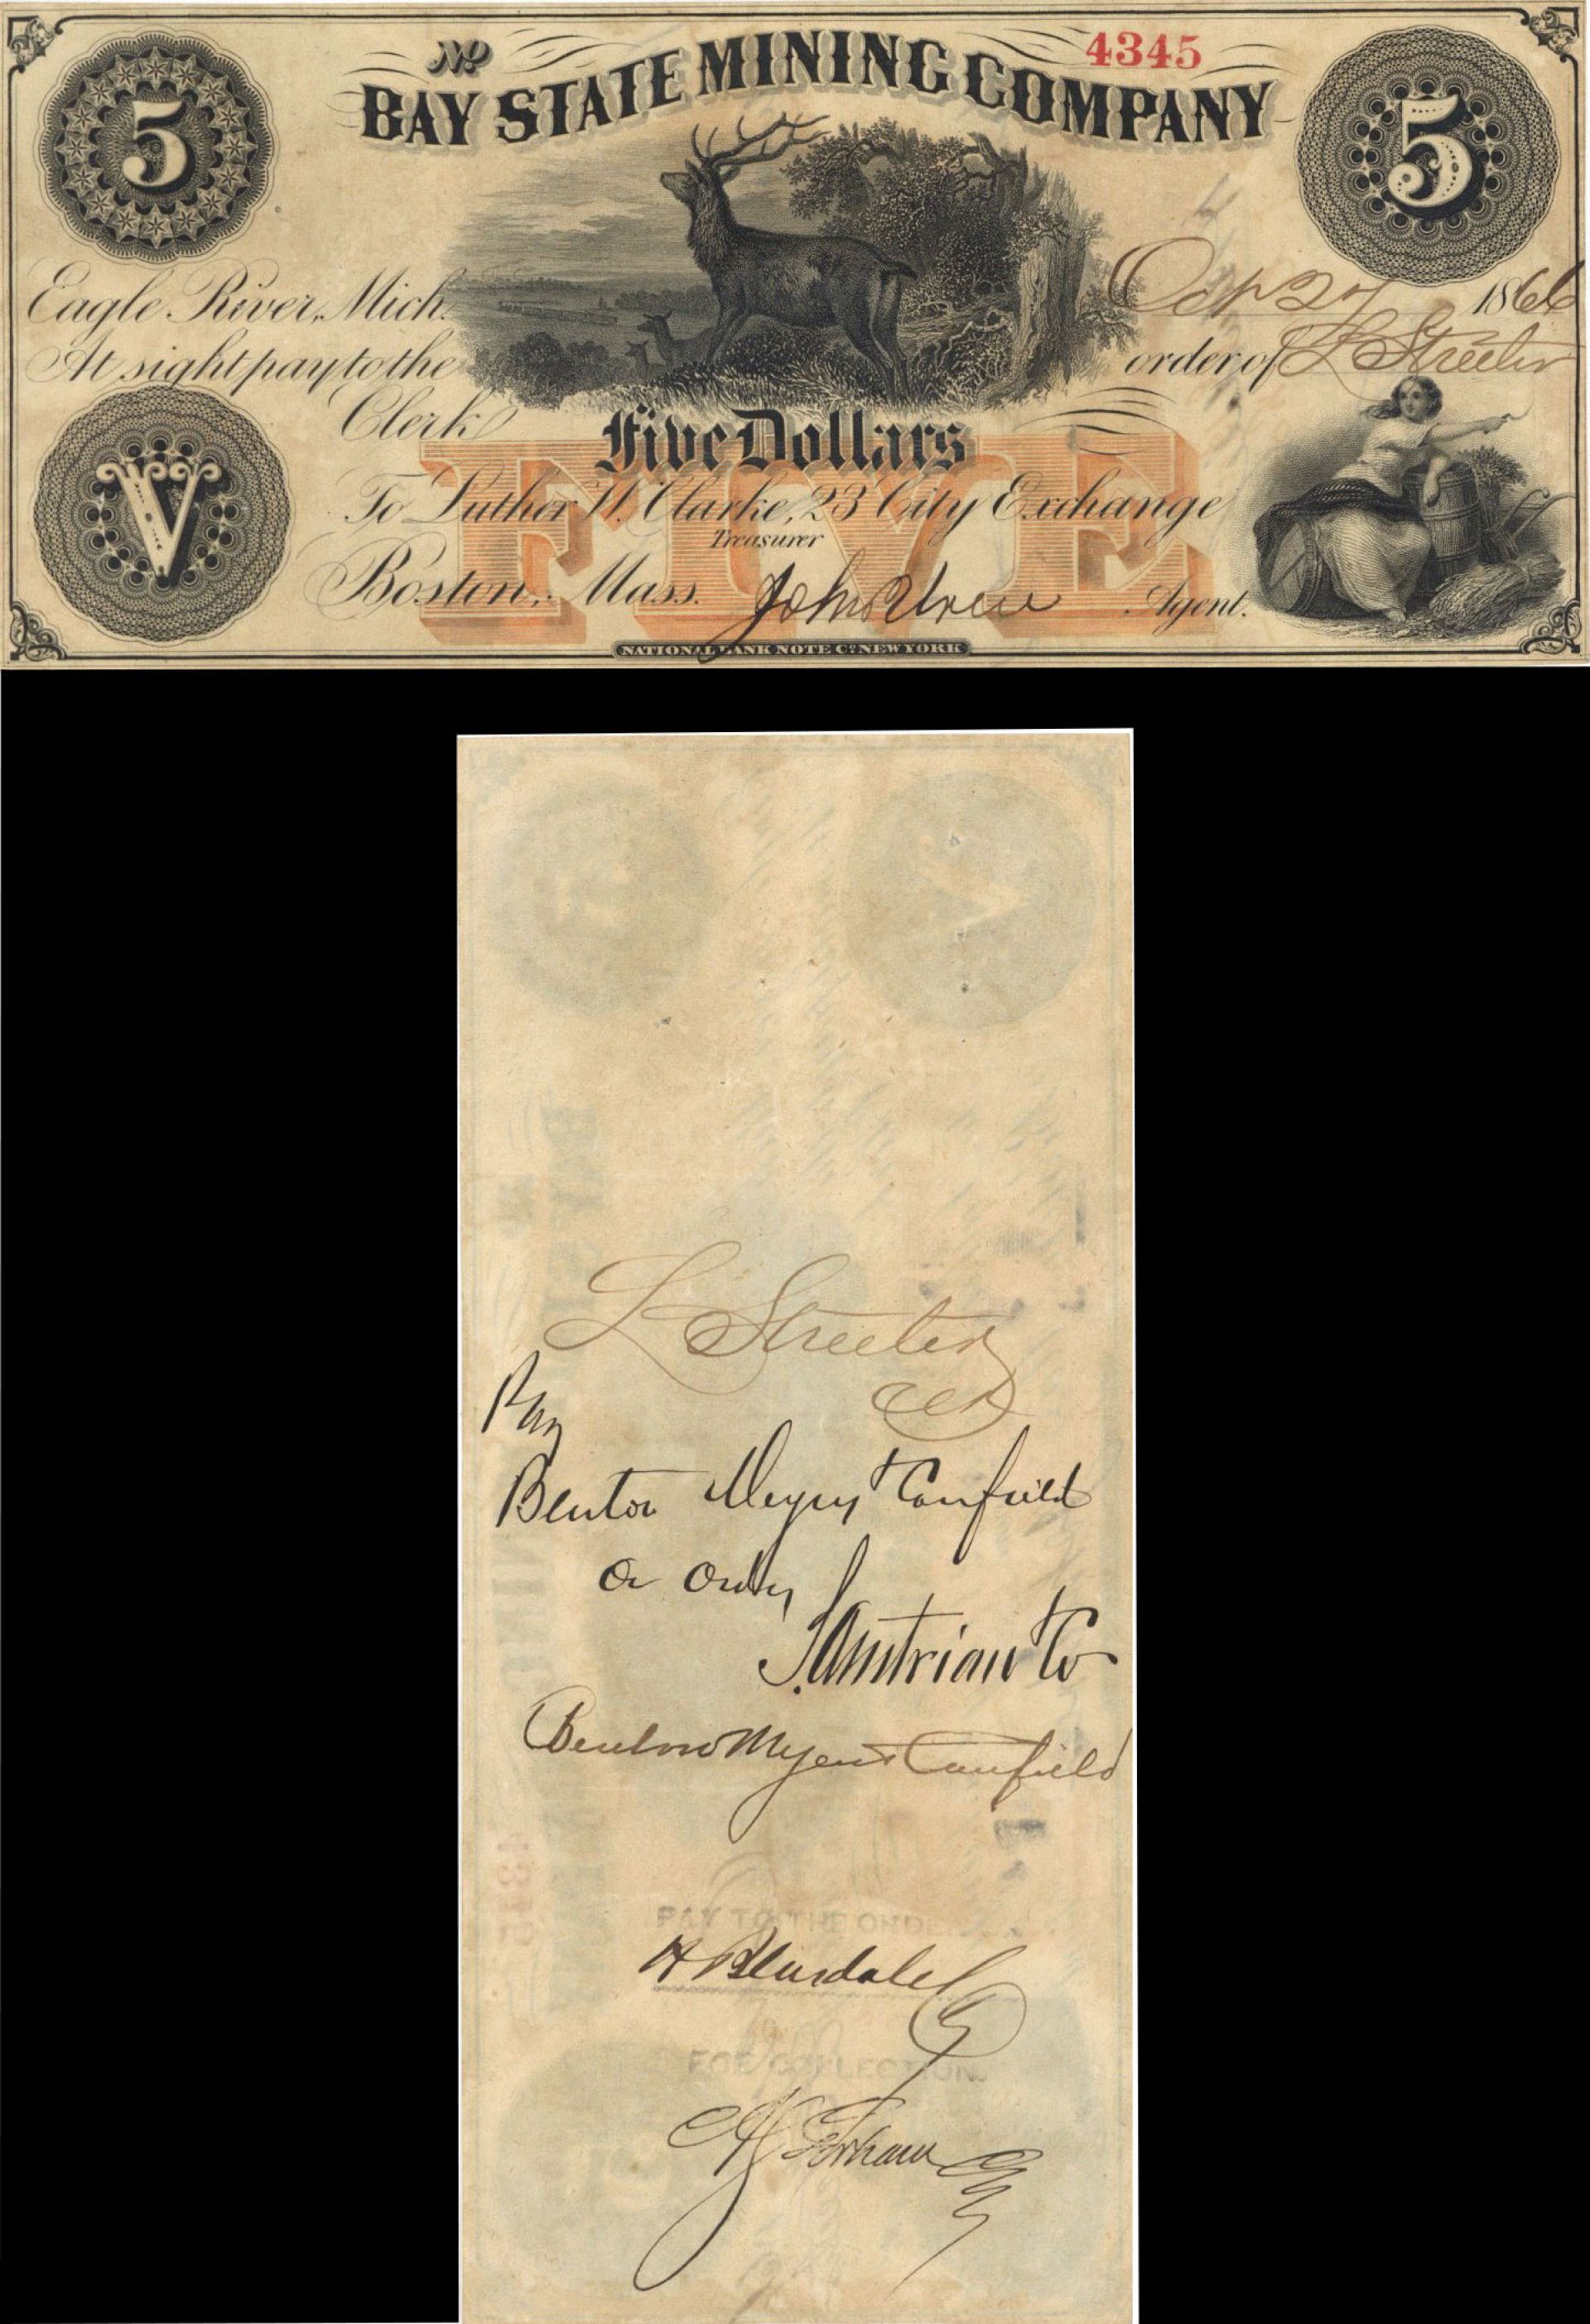 5
No 4345
5
BAY STATE MINING COMPANY
Eagle River, Mich. Oct 27 1866
At sight pay to the order of L Streeter
Clerk
Five Dollars
FIVE
V
To Luther W. Clarke, 23 City Exchange
Treasurer
Boston, Mass. John Uren Agent.
NATIONAL BANK NOTE Co. NEW YORK
L Streeter
Pay
Benton Meyers & Canfield
or order
S. Austrian & Co
Benton Myers & Canfield
PAY TO THE ORDE
FOR COLLECTION.